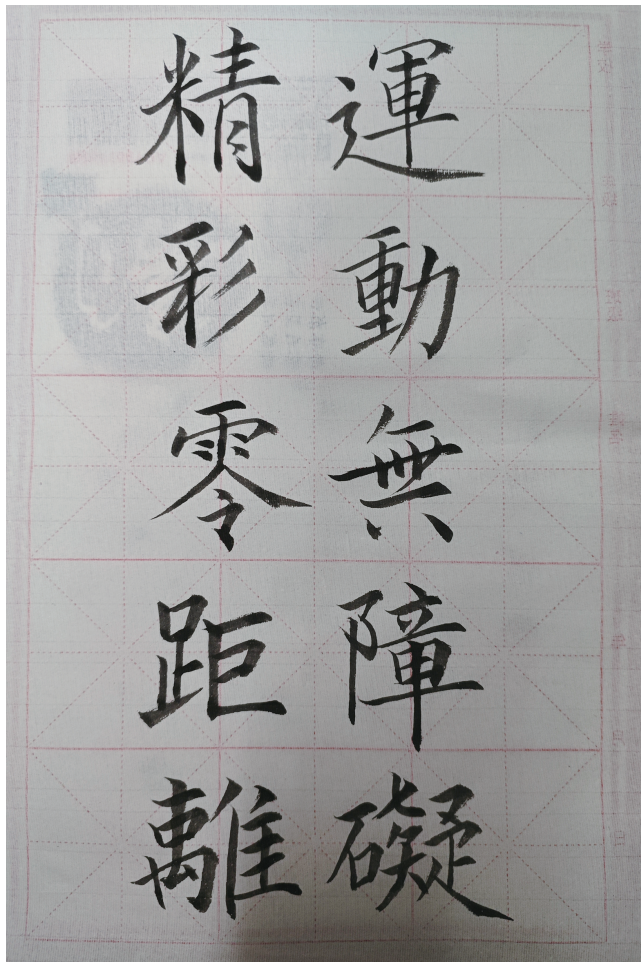 運動無障礙
精彩零距離